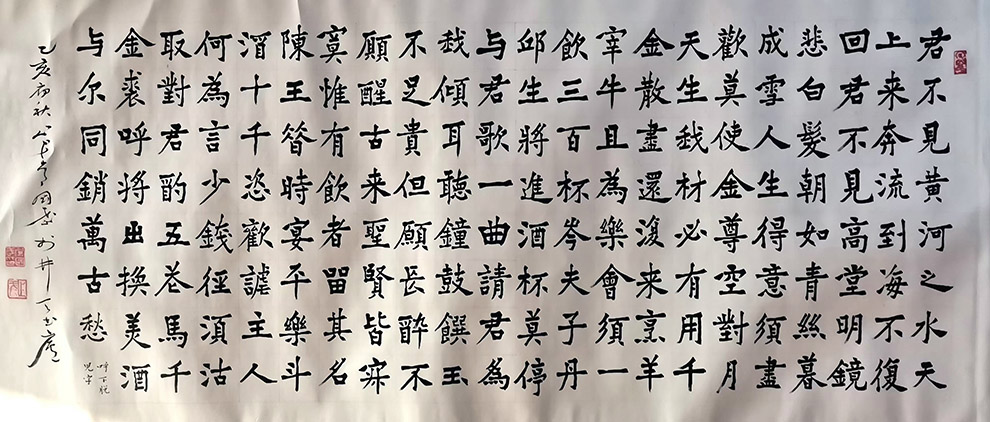 君不見黃河之水天
上来奔流到海不復
回君不見高堂明鏡
悲白髮朝如青絲暮
成雪人生得意須盡
歡莫使金尊空對月
天生我材必有用千
金散盡還復来烹羊
宰牛且為樂會須一
飲三百杯岑夫子丹
邱生將進酒杯莫停
与君歌一曲請君為
我傾耳聽鐘鼓饌玉
不足貴但願長醉不
願醒古来聖賢皆寂
寞惟有飲者留其名
陳王昝時宴平樂斗
酒十千恣歡謔主人
何為言少錢徑須沽
取對君酌五花馬千
金裘呼将出換美酒
与尔同銷萬古愁
呼下脱
兒字
己亥初秋